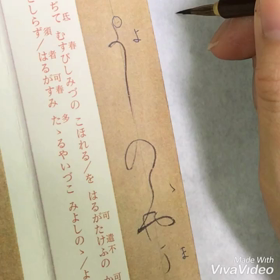 よしのゝや
ぢて むすびしみづの こほれる/を はるがたけふの
こしらず/はるがすみ たゝるやいづこ みよしのゝ/よ
Made With
VivaVideo